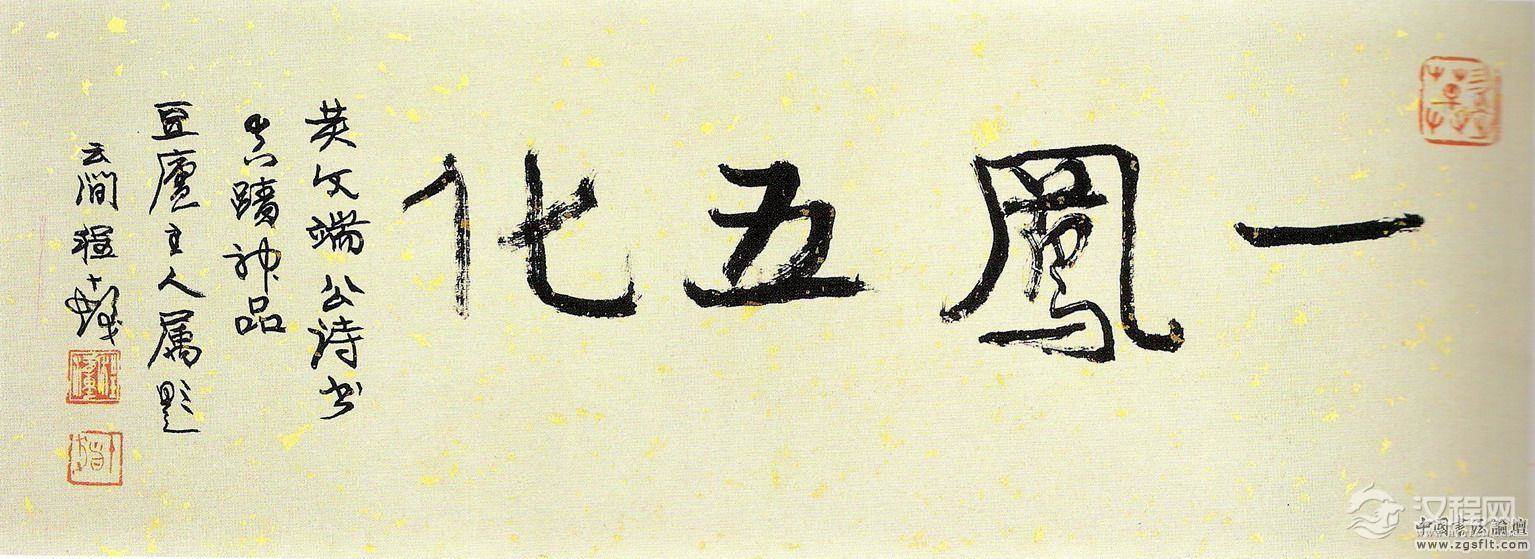 一鳳五化
英文端公诗书
真蹟神品
豆廬主人属题
云间程十髮
汉程网
中國書法論壇
www.zgsflt.com